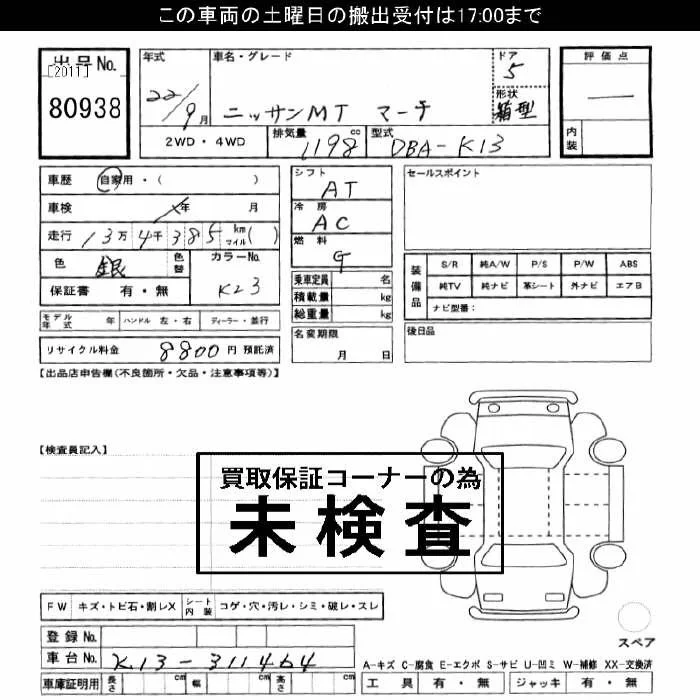 この車両の土曜日の搬出受付は17:00まで
出品No.
[2011]
80938
年式
22/9月
車名・グレード
ニッサンMT マーチ
ドア
5
形状
箱型
評価点
―
内装
2WD・4WD
排気量 1198 cc
型式 DBA-K13
車歴 自家用・( )
車検 年 月
走行 13万 4千 3 8 5 km マイル( )
色 銀 色替
カラーNo. K23
保証書 有・無
シフト
AT
冷房
AC
燃料
G
セールスポイント
乗車定員 名
積載量 kg
総重量 kg
装備品
S/R 純A/W P/S P/W ABS
純TV 純ナビ 革シート 外ナビ エアB
ナビ型番:
モデル年式 年 ハンドル 左・右 ディーラー・並行
名変期限
月 日
後日品
リサイクル料金 8800 円 預託済
【出品店申告欄(不良箇所・欠品・注意事項等)】
【検査員記入】
買取保証コーナーの為
未検査
FW キズ・トビ石・割レX シート内装 コゲ・穴・汚レ・シミ・破レ・スレ
登録No.
車台No. K13-311464
車庫証明用 長さ cm 幅 cm 高さ cm
スペア
A-キズ C-腐食 E-エクボ S-サビ U-凹ミ W-補修 XX-交換済
工具 有・無 ジャッキ 有・無